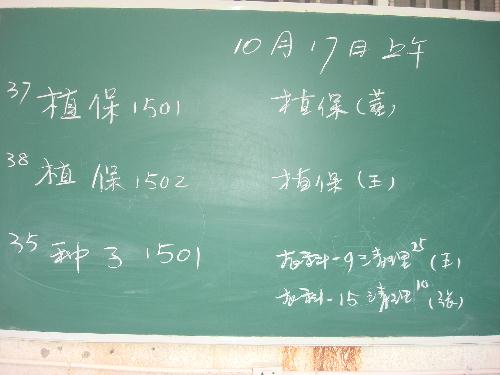 10月17日上午
37 植保1501 植保(蔡)
38 植保1502 植保(王)
35 种子1501 农科-9 清理25 (王)
农科-15 清理10 (张)